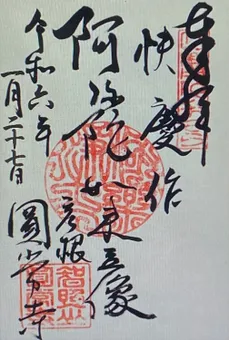 奉拝
快慶作
阿弥陀如来立像
彦根
圓常寺
令和六年
一月二十七日